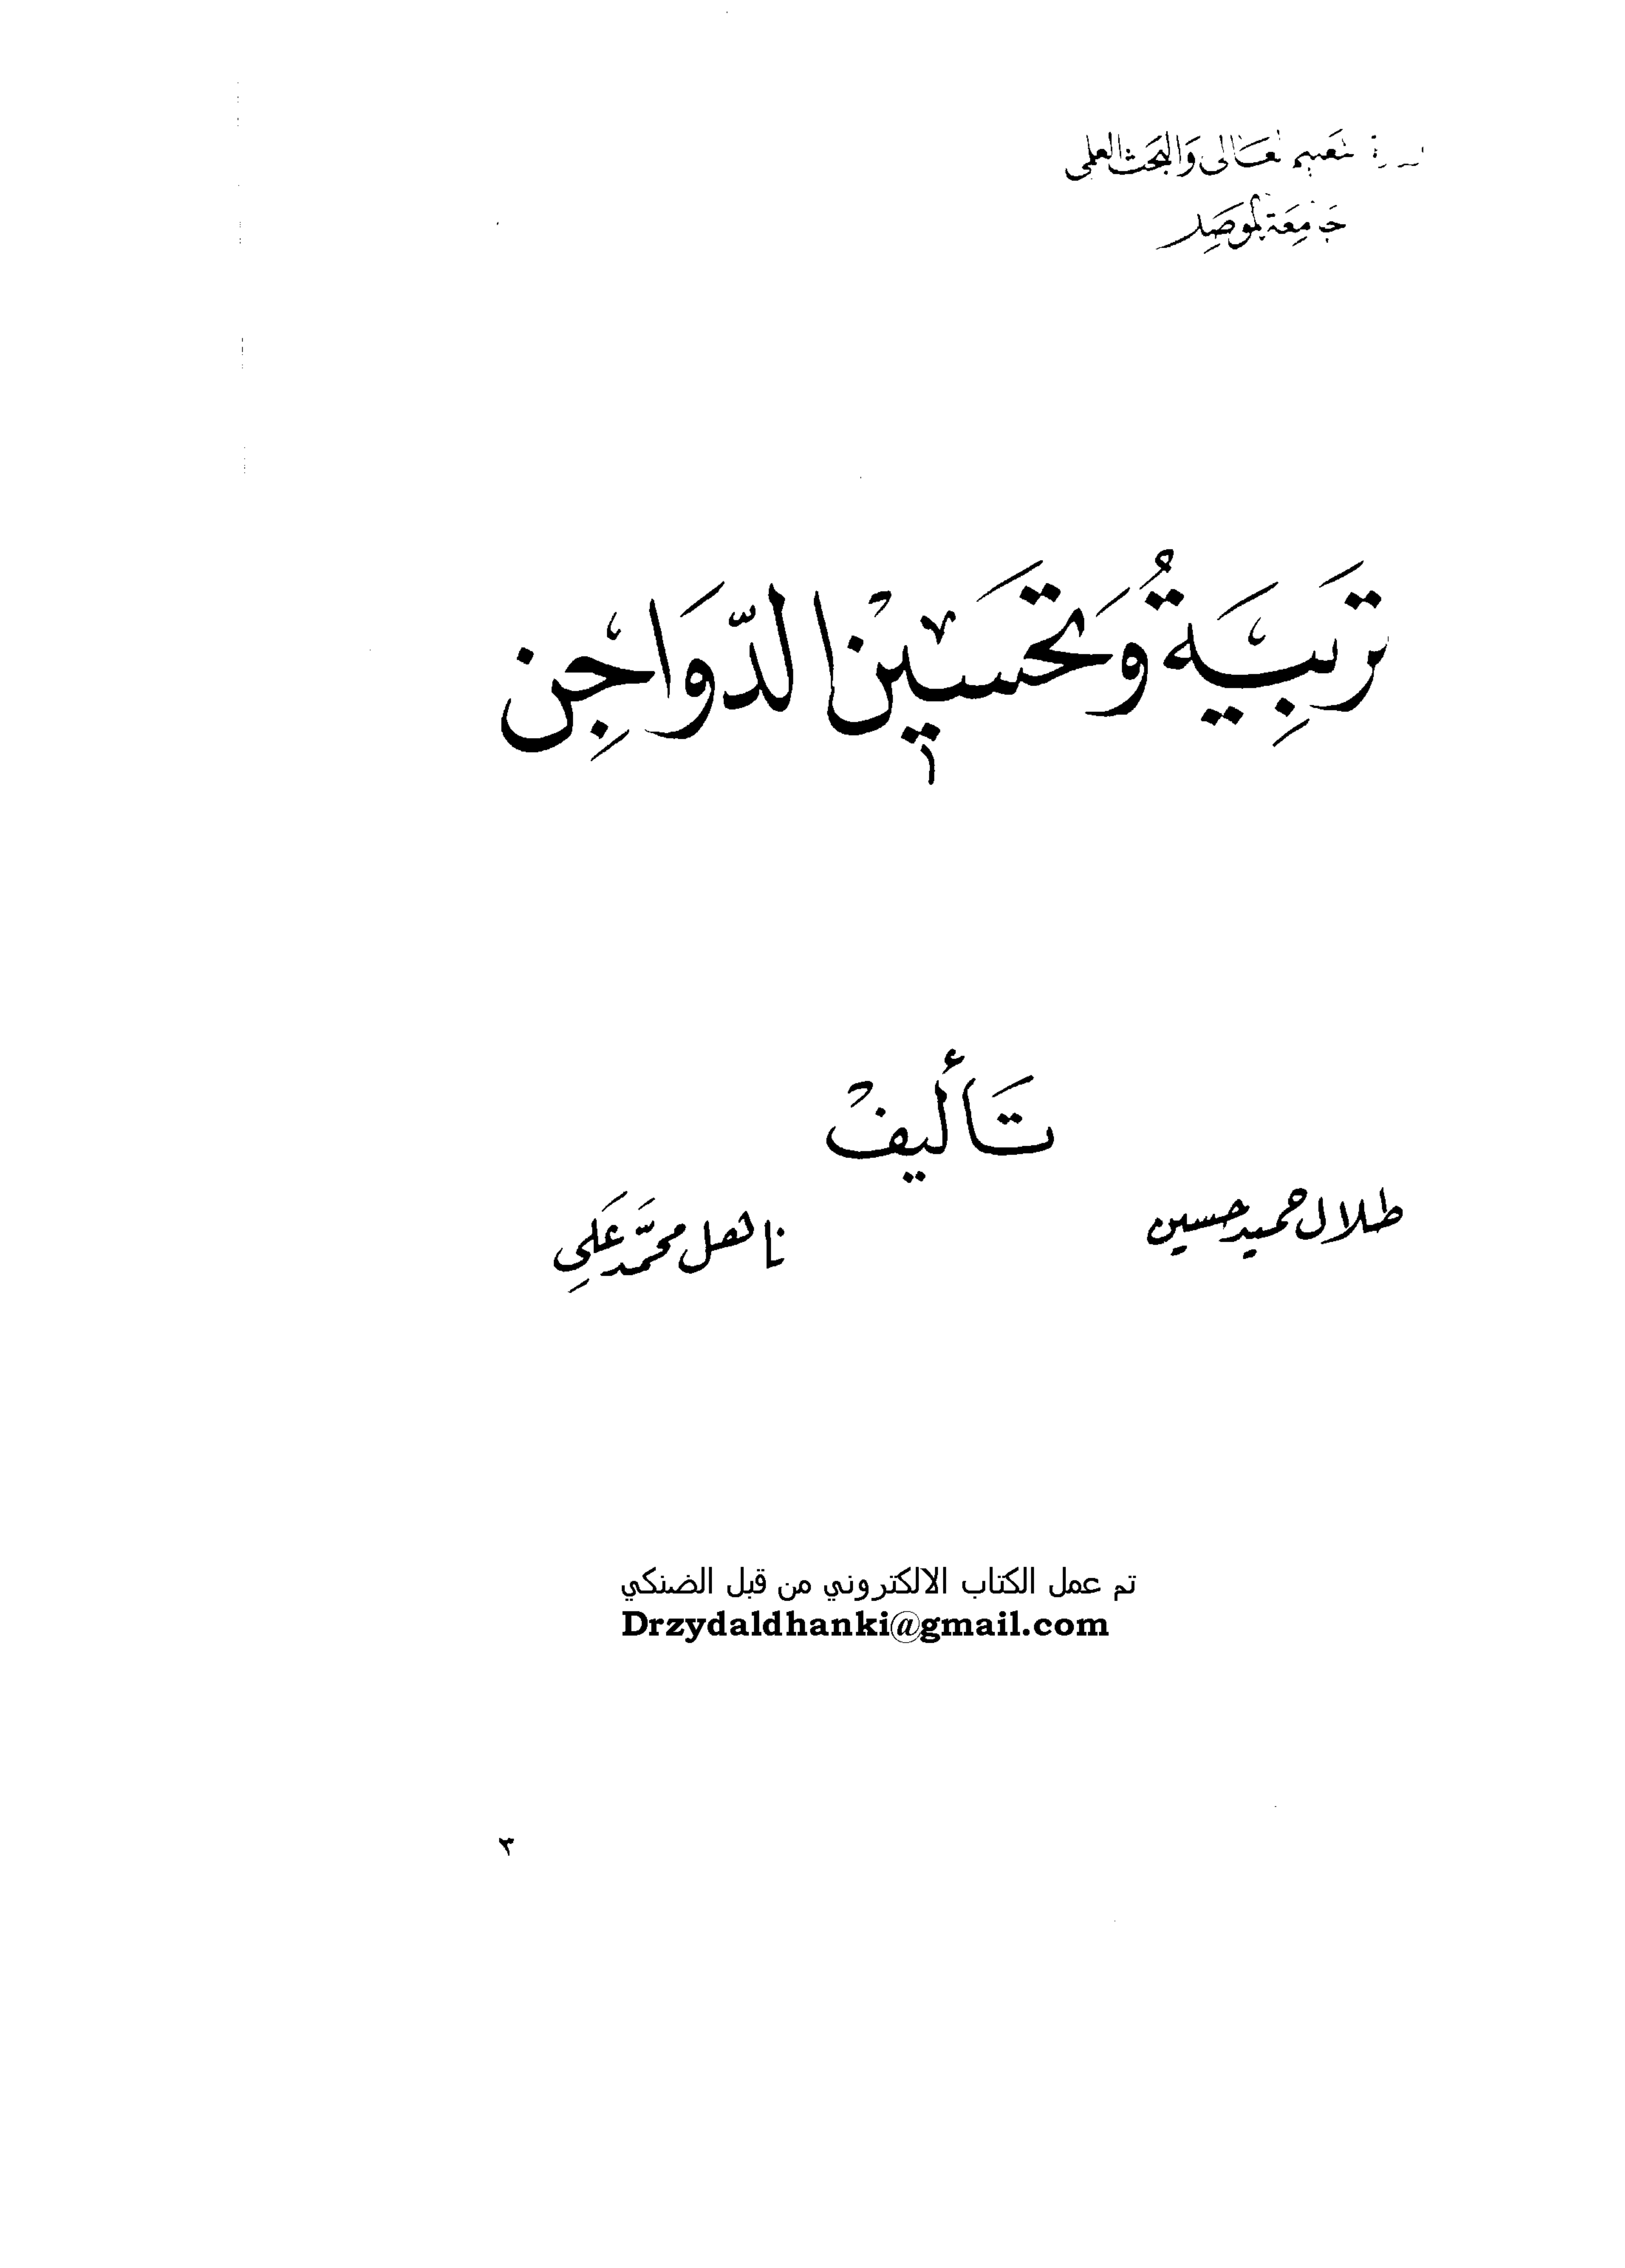 وزارة التعليم العالي والبحث العلمي
جامعة الموصل
تَربِيَةُ وَتحَسَيْن الدّوَاجِن
تَأليفْ
طلال حميد حسين
ناهل محمَّد عَلَيِ
تم عمل الكتاب الالكتروني من قبل الضنكي
Drzydaldhanki@gmail.com
٣